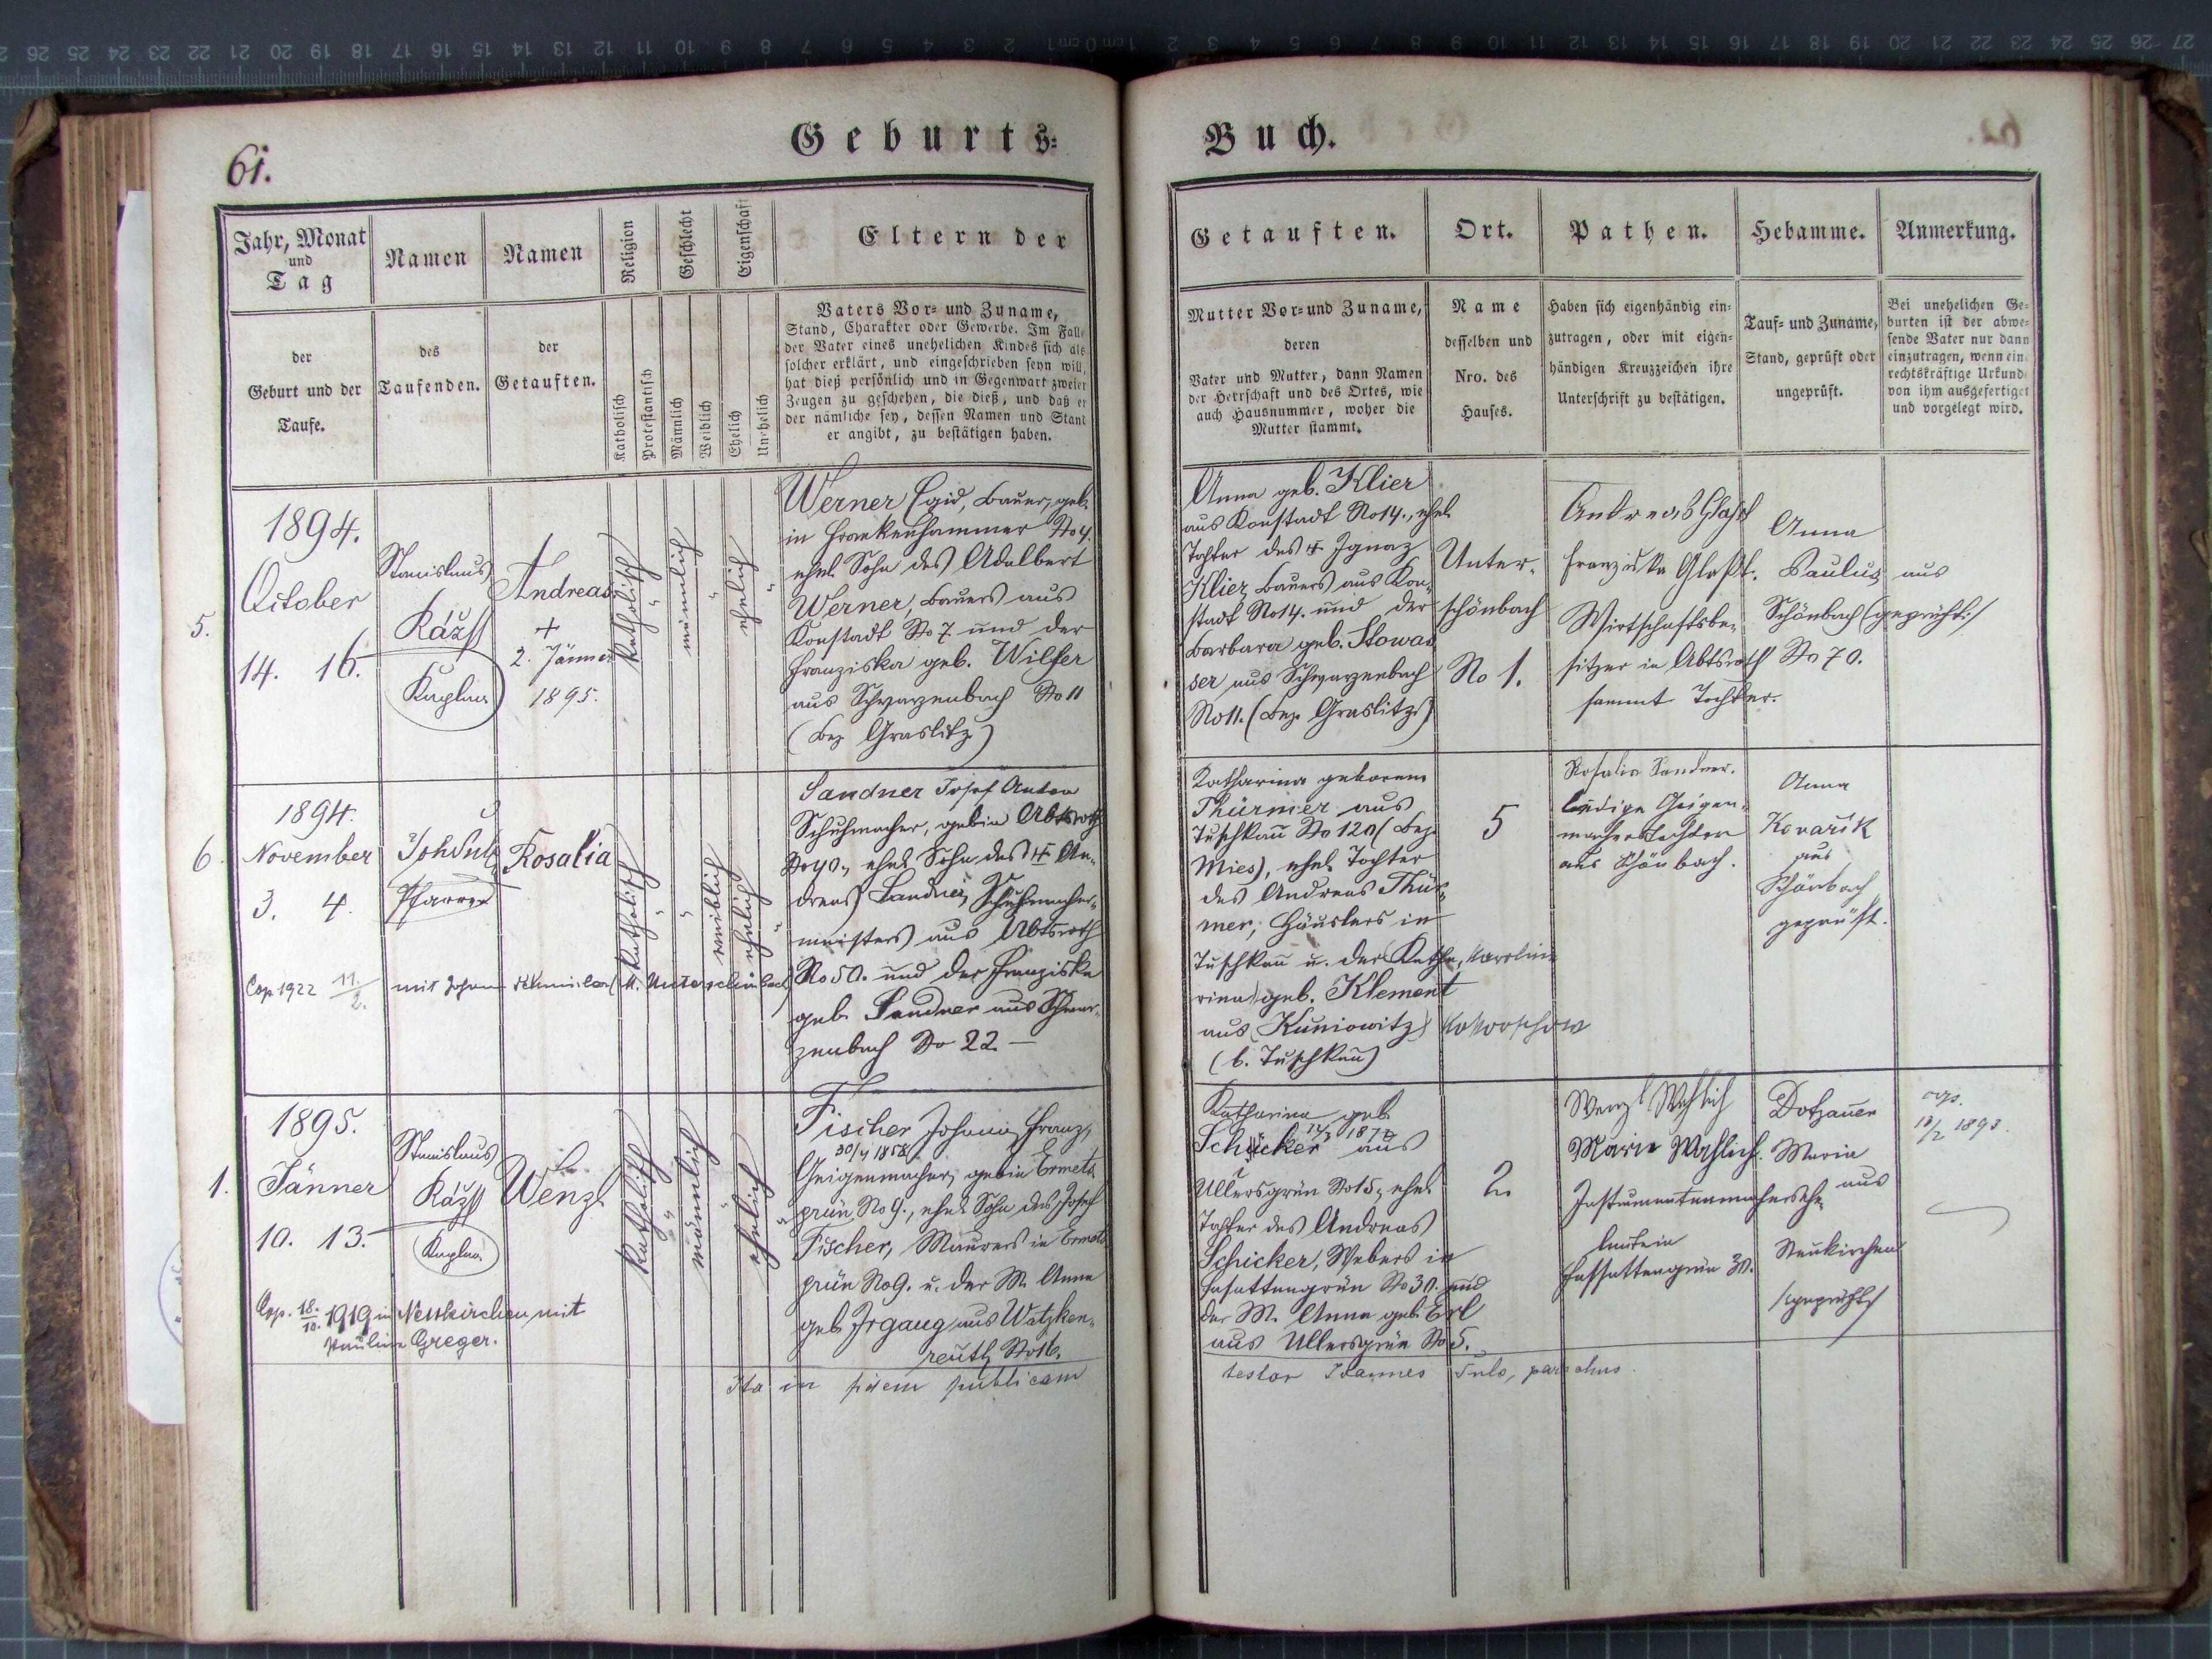 61.
Geburts=
Jahr, Monat
und
Tag
der
Geburt und der
Taufe.
Namen
des
Taufenden.
Namen
der
Getauften.
Religion
Katholisch
Protestantisch
Geschlecht
Männlich
Weiblich
Eigenschaft
Ehelich
Unehelich
Eltern der
Vaters Vor= und Zuname,
Stand, Charakter oder Gewerbe. Im Falle
der Vater eines unehelichen Kindes sich als
solcher erklärt, und eingeschrieben seyn will,
hat dieß persönlich und in Gegenwart zweier
Zeugen zu geschehen, die dieß, und daß er
der nämliche sey, dessen Namen und Stand
er angibt, zu bestätigen haben.
5.
1894.
October
14. 16.
Stanislaus
Kaplan
Andreas
+
2. Jänner
1895.
katholisch
männlich
ehelich
Werner Egid, Bauer, geb.
in Frankenhammer No 4.
ehel. Sohn des Adalbert
Werner, Bauers aus
Konstadt No 7. und der
Franziska geb. Wilfer
aus Schwarzenbach No 11
(Bez. Graslitz)
6.
1894.
November
3. 4.
Joh Sulz
Pfarrer
Rosalia
katholisch
weiblich
ehelich
Sandner Josef Anton
Schuhmacher, geb in Abtsroth
No 40., ehel. Sohn des + An=
dreas Sandner, Schuhmacher=
meisters aus Abtsroth
No 50. und der Franziska
geb. Sandner aus Schwar=
zenbach No 22 —
Cop 1922 11./2. mit Johann (k. Unterschönbach)
1.
1895.
Jänner
10. 13.
Stanislaus
Kaplan
Wenzl
katholisch
männlich
ehelich
Fischer Johann Franz,
30/4 1858
Geigenmacher, geb in Ermets=
grün No 9., ehel. Sohn des Josef
Fischer, Maurers in Ermets=
grün No 9. u. der M. Anna
geb. Irgang aus Watzken=
reuth No 16.
Cop. 18./10. 1919 in Neukirchen mit
Pauline Greger.
Ita in fidem publicam
Buch.
Getauften.
Mutter Vor= und Zuname,
deren
Vater und Mutter, dann Namen
der Herrschaft und des Ortes, wie
auch Hausnummer, woher die
Mutter stammt.
Ort.
Name
desselben und
Nro. des
Hauses.
Pathen.
Haben sich eigenhändig ein=
zutragen, oder mit eigen=
händigen Kreuzzeichen ihre
Unterschrift zu bestätigen.
Hebamme.
Tauf= und Zuname,
Stand, geprüft oder
ungeprüft.
Anmerkung.
Bei unehelichen Ge=
burten ist der abwe=
sende Vater nur dann
einzutragen, wenn eine
rechtskräftige Urkunde
von ihm ausgefertiget
und vorgelegt wird.
Anna geb. Klier
aus Konstadt No 14., ehel.
Tochter des + Ignaz
Klier, Bauers aus Kon=
stadt No 14. und der
Barbara geb. Stowas=
ser aus Schwarzenbach
No 11. (Bez. Graslitz)
Unter=
schönbach
No 1.
Andreas Glaßl
Franziska Glaßl.
Wirtschaftsbe=
sitzer in Abtsroth
sammt Tochter.
Anna
Paulus aus
Schönbach (geprüft)
No 70.
Katharina geborene
Thürmer aus
Tuschkau No 120 (Bez.
Mies), ehel. Tochter
des Andreas Thür=
mer, Häuslers in
Tuschkau u. der Katha, Karolina
rina geb. Klement
aus (Kuniowitz)
(b. Tuschkau)
5
Rosalia Sandner.
ledige Geigen=
macherstochter
aus Schönbach.
Anna
Kovařík
aus
Schönbach
geprüft.
Katharina geb.
14/3 1872
Schicker aus
Ullersgrün No 15, ehel.
Tochter des Andreas
Schicker, Webers in
Fasattengrün No 30. und
der M. Anna geb. Erl
aus Ullersgrün No 5.
2.
Wenzl Wahlich
Marie Wahlich.
Instrumentenmachersehe=
leute in
Fassattengrün 30.
Dotzauer
Maria
aus
Neukirchen
/geprüft/
cop.
18/2 1893.
testor Joannes Sulz, parochus.